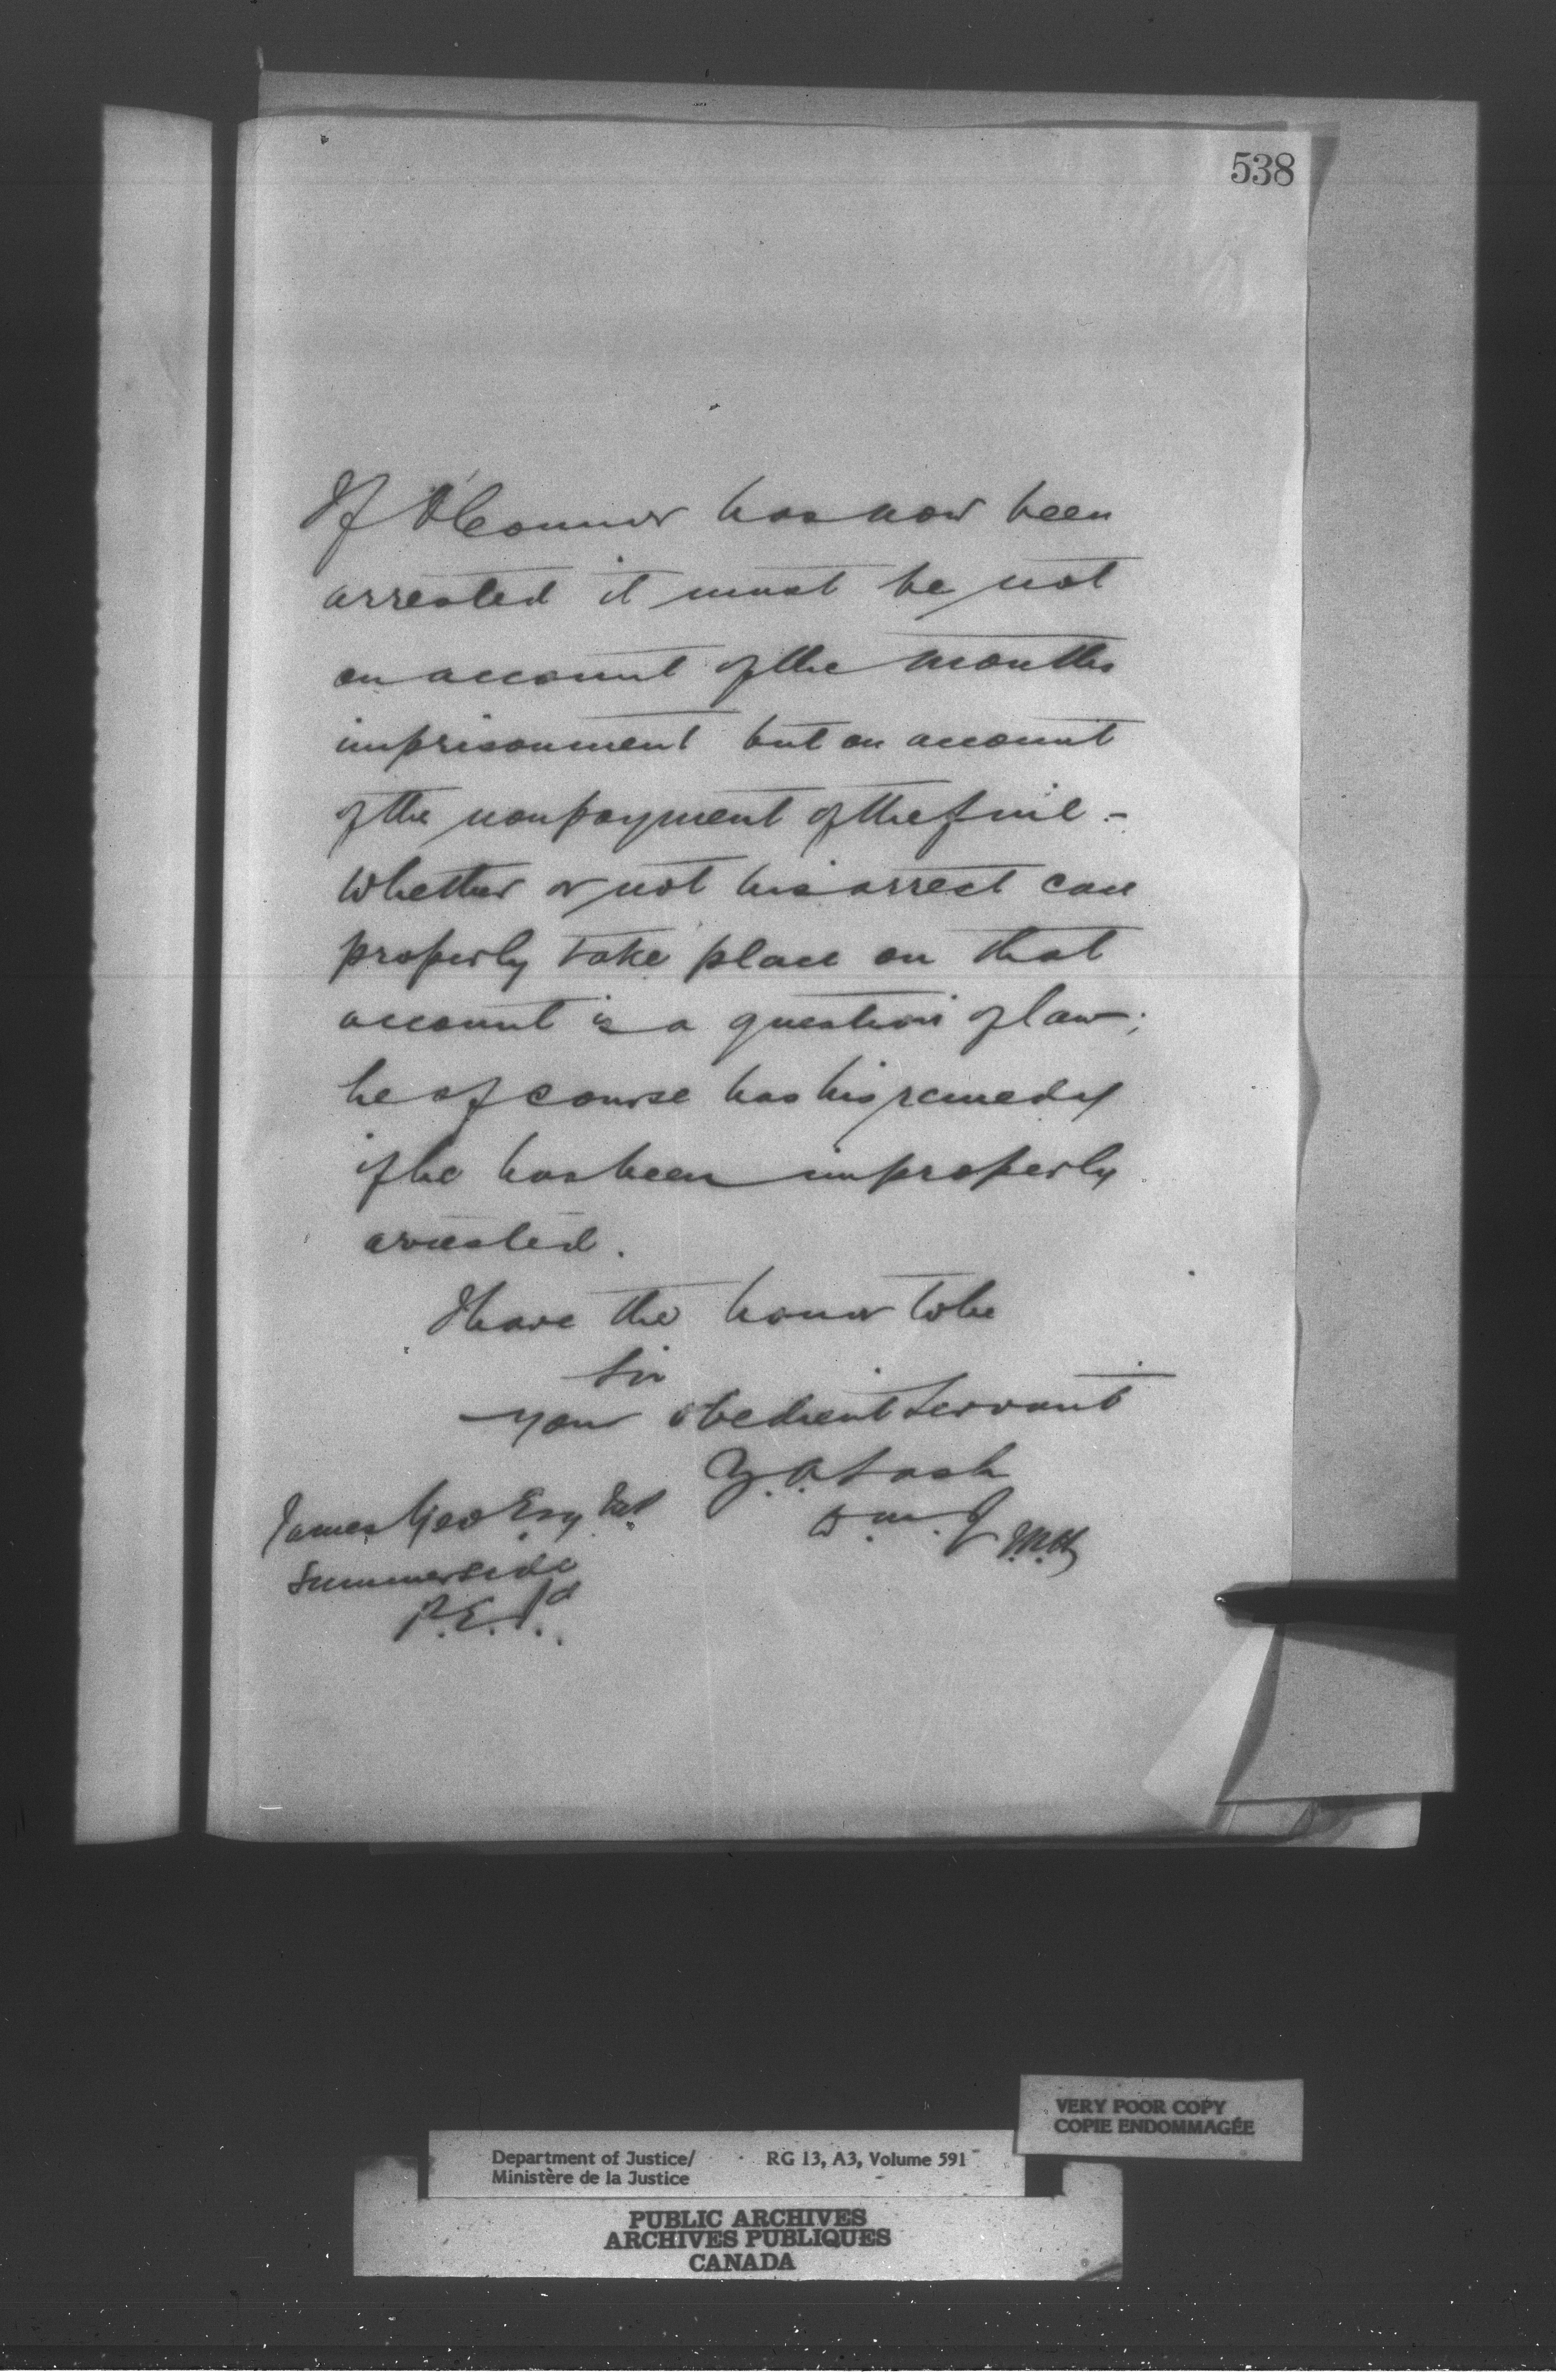 538
If O'Connor has now been
arrested it must be not
on account of the months
imprisonment but on account
of the nonpayment of the fine -
Whether or not his arrest can
properly take place on that
account is a question of law;
he of course has his remedy
if he has been improperly
arrested.
I have the honor to be
Sir
your obedient servant
Z. A. Lash
D. M. J
James Esq
Summerside
P. E. Id.
VERY POOR COPY
COPIE ENDOMMAGÉE
Department of Justice/ RG 13, A3, Volume 591
Ministère de la Justice
PUBLIC ARCHIVES
ARCHIVES PUBLIQUES
CANADA